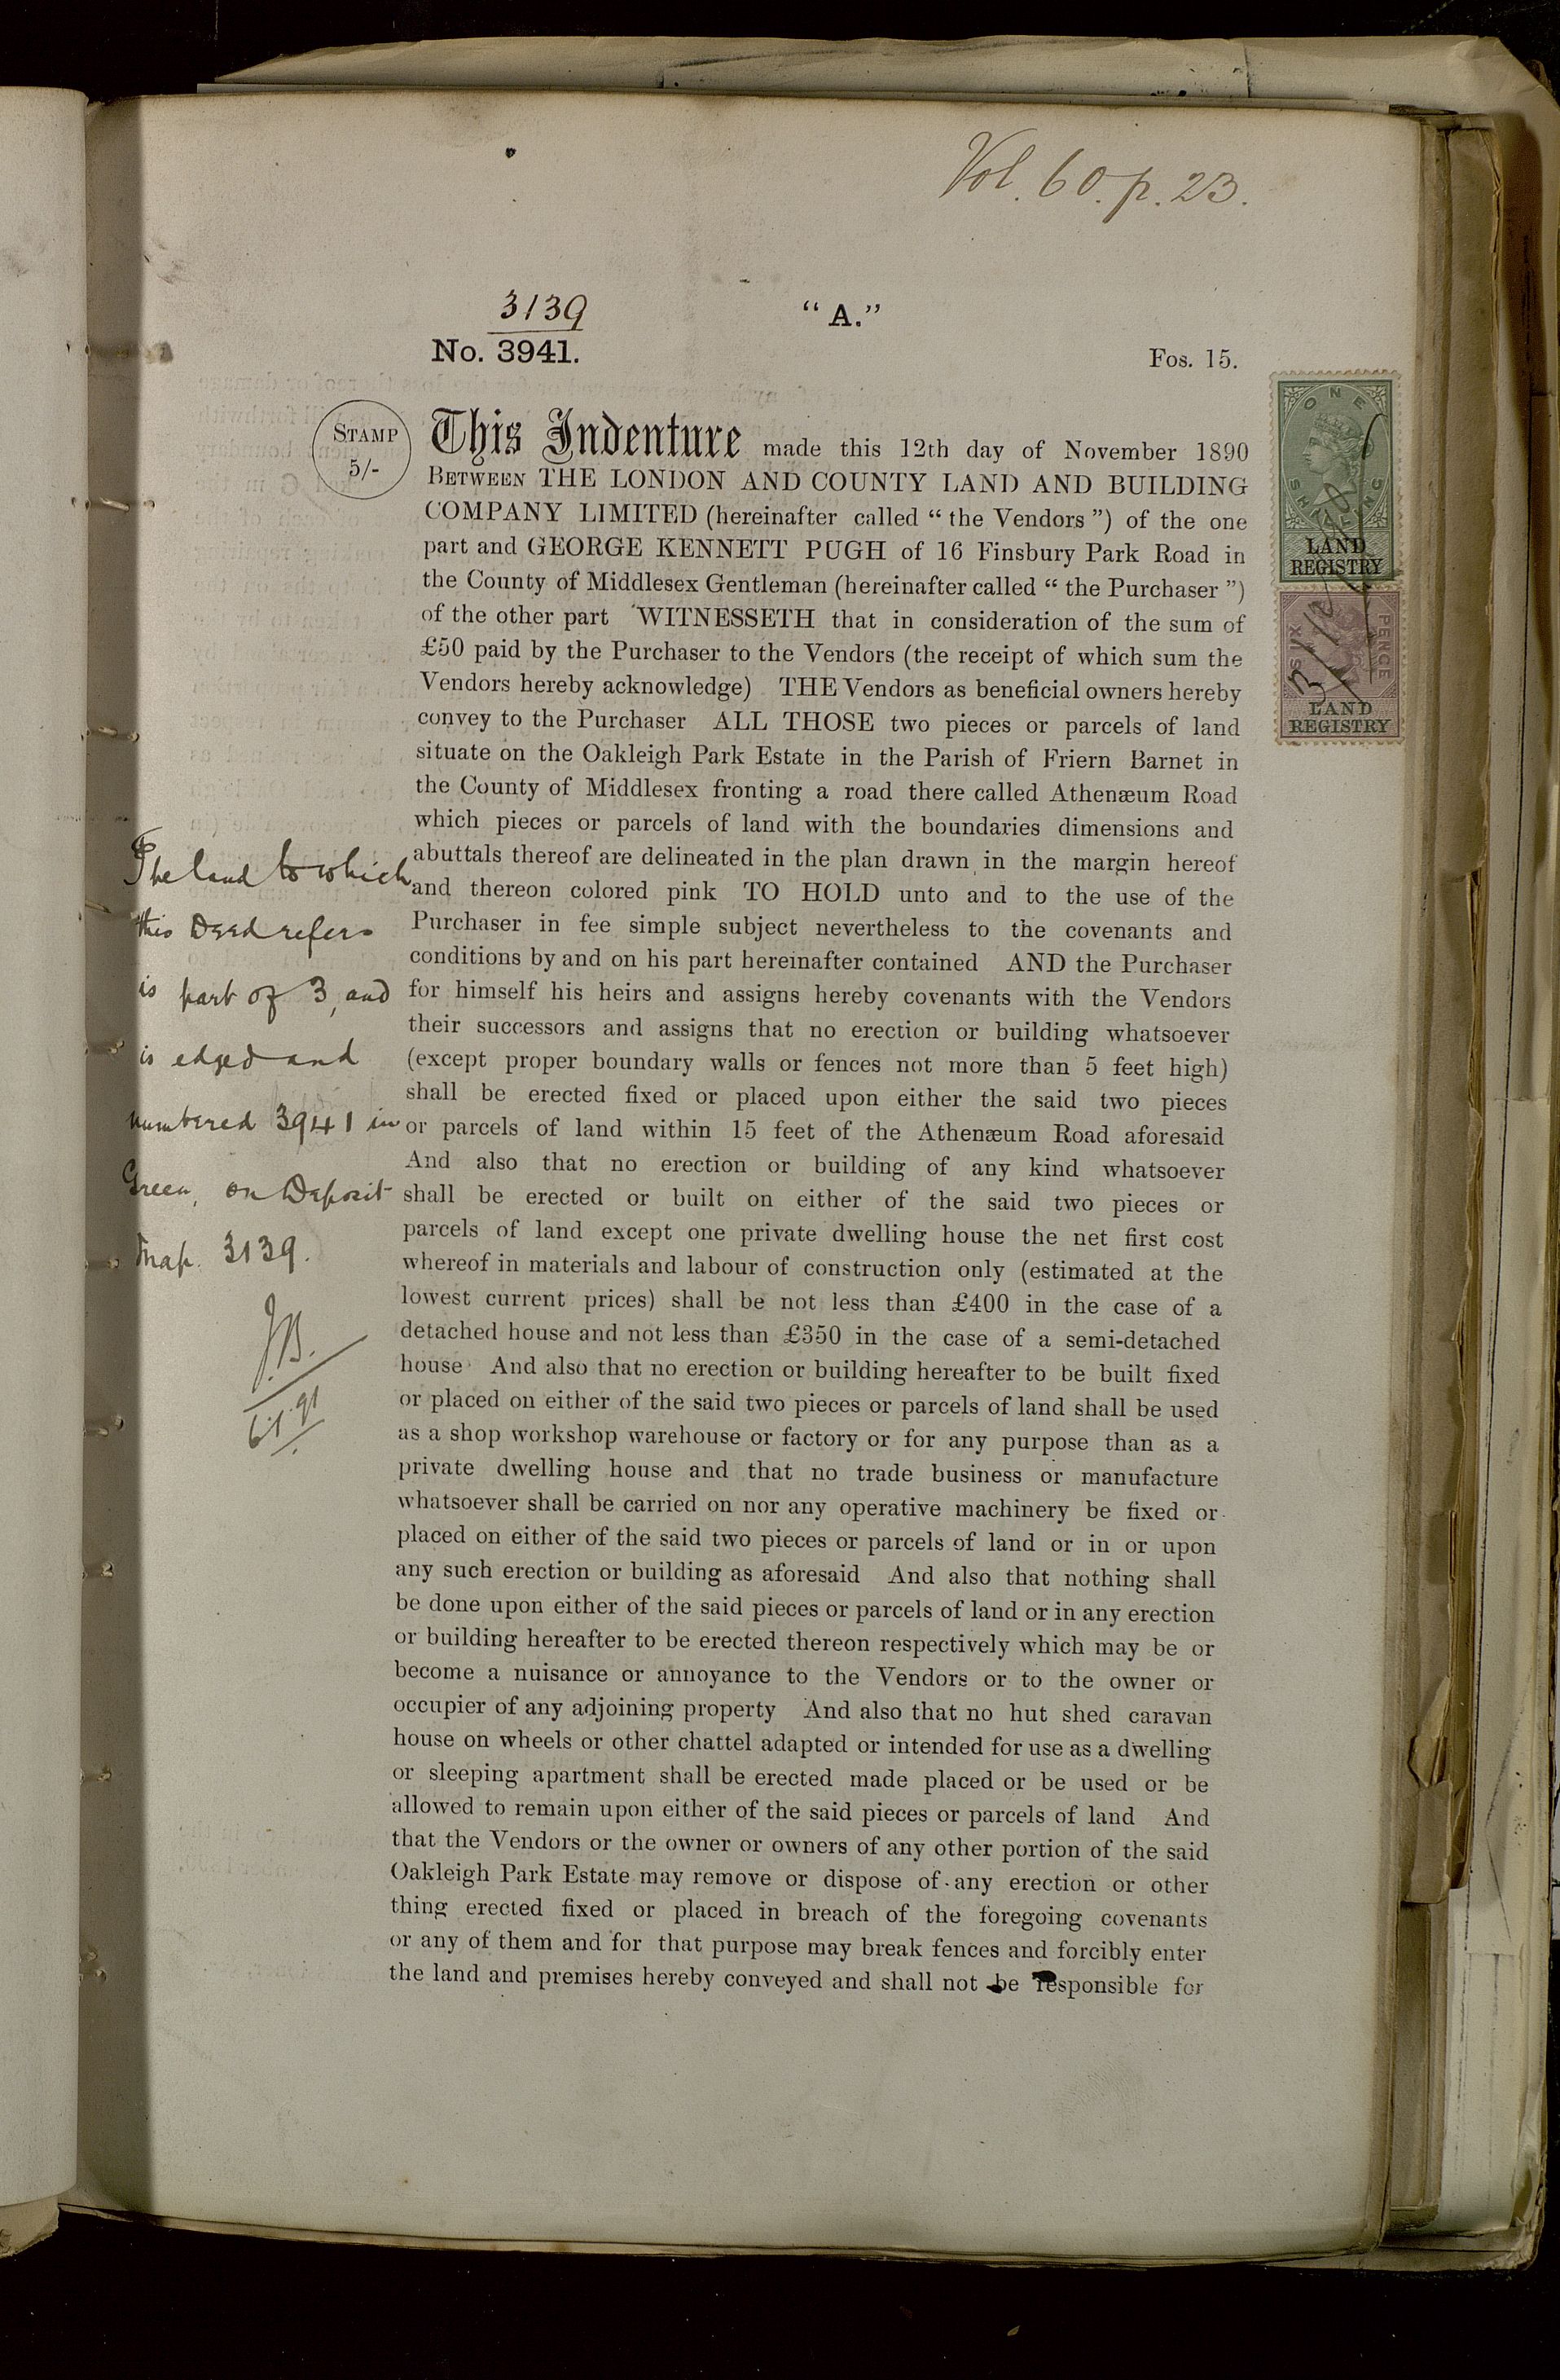 Vol. 60. p. 23.
3139
"A."
No. 3941.
Fos. 15.
STAMP
5/-
This Indenture made this 12th day of November 1890
BETWEEN THE LONDON AND COUNTY LAND AND BUILDING
COMPANY LIMITED (hereinafter called "the Vendors") of the one
part and GEORGE KENNETT PUGH of 16 Finsbury Park Road in
the County of Middlesex Gentleman (hereinafter called "the Purchaser")
of the other part WITNESSETH that in consideration of the sum of
£50 paid by the Purchaser to the Vendors (the receipt of which sum the
Vendors hereby acknowledge) THE Vendors as beneficial owners hereby
convey to the Purchaser ALL THOSE two pieces or parcels of land
situate on the Oakleigh Park Estate in the Parish of Friern Barnet in
the County of Middlesex fronting a road there called Athenæum Road
which pieces or parcels of land with the boundaries dimensions and
abuttals thereof are delineated in the plan drawn in the margin hereof
and thereon colored pink TO HOLD unto and to the use of the
Purchaser in fee simple subject nevertheless to the covenants and
conditions by and on his part hereinafter contained AND the Purchaser
for himself his heirs and assigns hereby covenants with the Vendors
their successors and assigns that no erection or building whatsoever
(except proper boundary walls or fences not more than 5 feet high)
shall be erected fixed or placed upon either the said two pieces
or parcels of land within 15 feet of the Athenæum Road aforesaid
And also that no erection or building of any kind whatsoever
shall be erected or built on either of the said two pieces or
parcels of land except one private dwelling house the net first cost
whereof in materials and labour of construction only (estimated at the
lowest current prices) shall be not less than £400 in the case of a
detached house and not less than £350 in the case of a semi-detached
house And also that no erection or building hereafter to be built fixed
or placed on either of the said two pieces or parcels of land shall be used
as a shop workshop warehouse or factory or for any purpose than as a
private dwelling house and that no trade business or manufacture
whatsoever shall be carried on nor any operative machinery be fixed or
placed on either of the said two pieces or parcels of land or in or upon
any such erection or building as aforesaid And also that nothing shall
be done upon either of the said pieces or parcels of land or in any erection
or building hereafter to be erected thereon respectively which may be or
become a nuisance or annoyance to the Vendors or to the owner or
occupier of any adjoining property And also that no hut shed caravan
house on wheels or other chattel adapted or intended for use as a dwelling
or sleeping apartment shall be erected made placed or be used or be
allowed to remain upon either of the said pieces or parcels of land And
that the Vendors or the owner or owners of any other portion of the said
Oakleigh Park Estate may remove or dispose of any erection or other
thing erected fixed or placed in breach of the foregoing covenants
or any of them and for that purpose may break fences and forcibly enter
the land and premises hereby conveyed and shall not be responsible for
The land to which
this Deed refers
is part of 3, and
is edged and
numbered 3941 in
Green, on Deposit
Map. 3139.
J.B.
6.1.91
ONE
SHILLING
LAND
REGISTRY
SIX
PENCE
LAND
REGISTRY